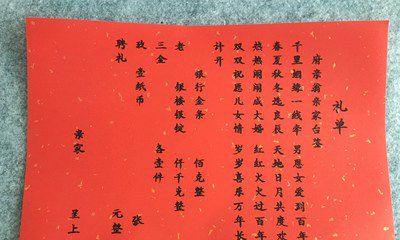 礼单
府亲翁亲家台鉴
千里姻缘一线牵 男恩女爱到百年
春夏秋冬选良辰 天地日月共度欢
热热闹闹成大婚 红红火火过百年
双双祝愿儿女情 岁岁喜乐万年长
计开
银行金条 佰克整
老 银楼银锭 仟千克整
三金 各壹件
玫 壹纸币 张
聘礼 元整
亲家 呈上